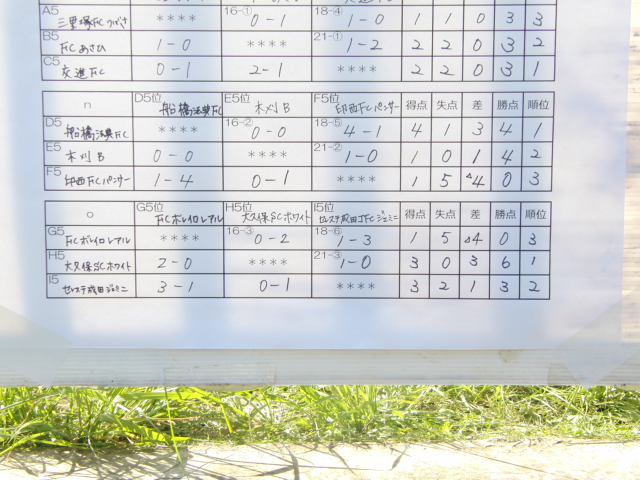 A5 三里塚FCつばさ **** 16-① 0-1 18-④ 1-0 1 1 0 3 3
B5 FCあさひ 1-0 **** 21-① 1-2 2 2 0 3 2
C5 友進FC 0-1 2-1 **** 2 2 0 3 1
n D5位 船橋法典FC E5位 木刈B F5位 印西FCパンサー 得点 失点 差 勝点 順位
D5 船橋法典FC **** 16-② 0-0 18-⑤ 4-1 4 1 3 4 1
E5 木刈B 0-0 **** 21-② 1-0 1 0 1 4 2
F5 印西FCパンサー 1-4 0-1 **** 1 5 △4 0 3
o G5位 FCボレイロレアル H5位 大久保SCホワイト I5位 セレステ成田JFCジェミニ 得点 失点 差 勝点 順位
G5 FCボレイロレアル **** 16-③ 0-2 18-⑥ 1-3 1 5 △4 0 3
H5 大久保SCホワイト 2-0 **** 21-③ 1-0 3 0 3 6 1
I5 セレステ成田ジェミニ 3-1 0-1 **** 3 2 1 3 2